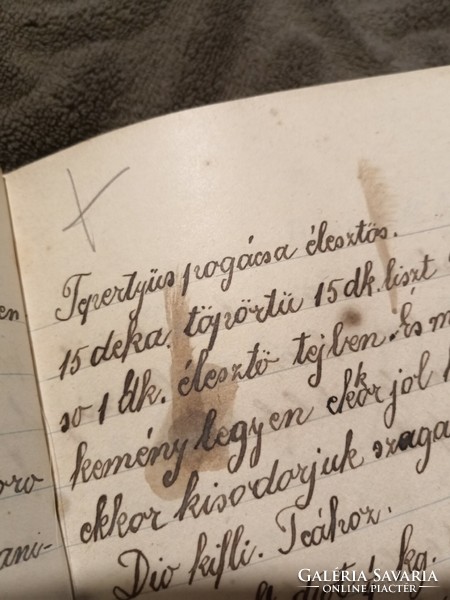 Tepertyüs pogácsa élesztös.
15 deka. töpörtü 15 dk. liszt
so 1 dk. élesztö tejben. És m
kemény legyen ekkor jól
ekkor kisodorjuk szaga
Dio kifli. Teához.
kg.
en
oro
ani-
GALÉRIA SAVARIA
ONLINE PIACTÉR